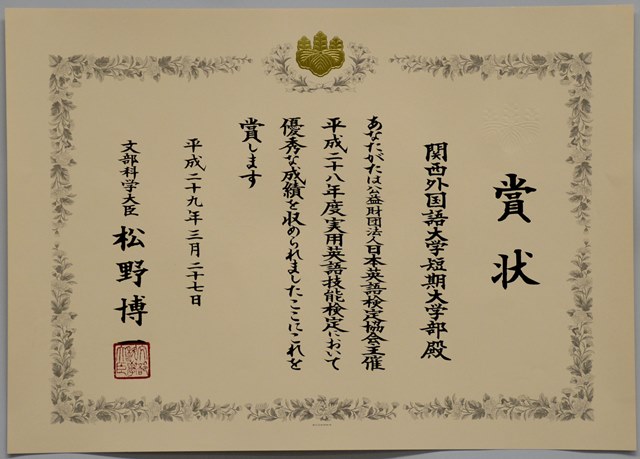 賞状
関西外国語大学短期大学部殿
あなたがたは公益財団法人日本英語検定協会主催
平成二十八年度実用英語技能検定において
優秀な成績を収められましたここにこれを
賞します
平成二十九年三月二十七日
文部科学大臣 松野博一